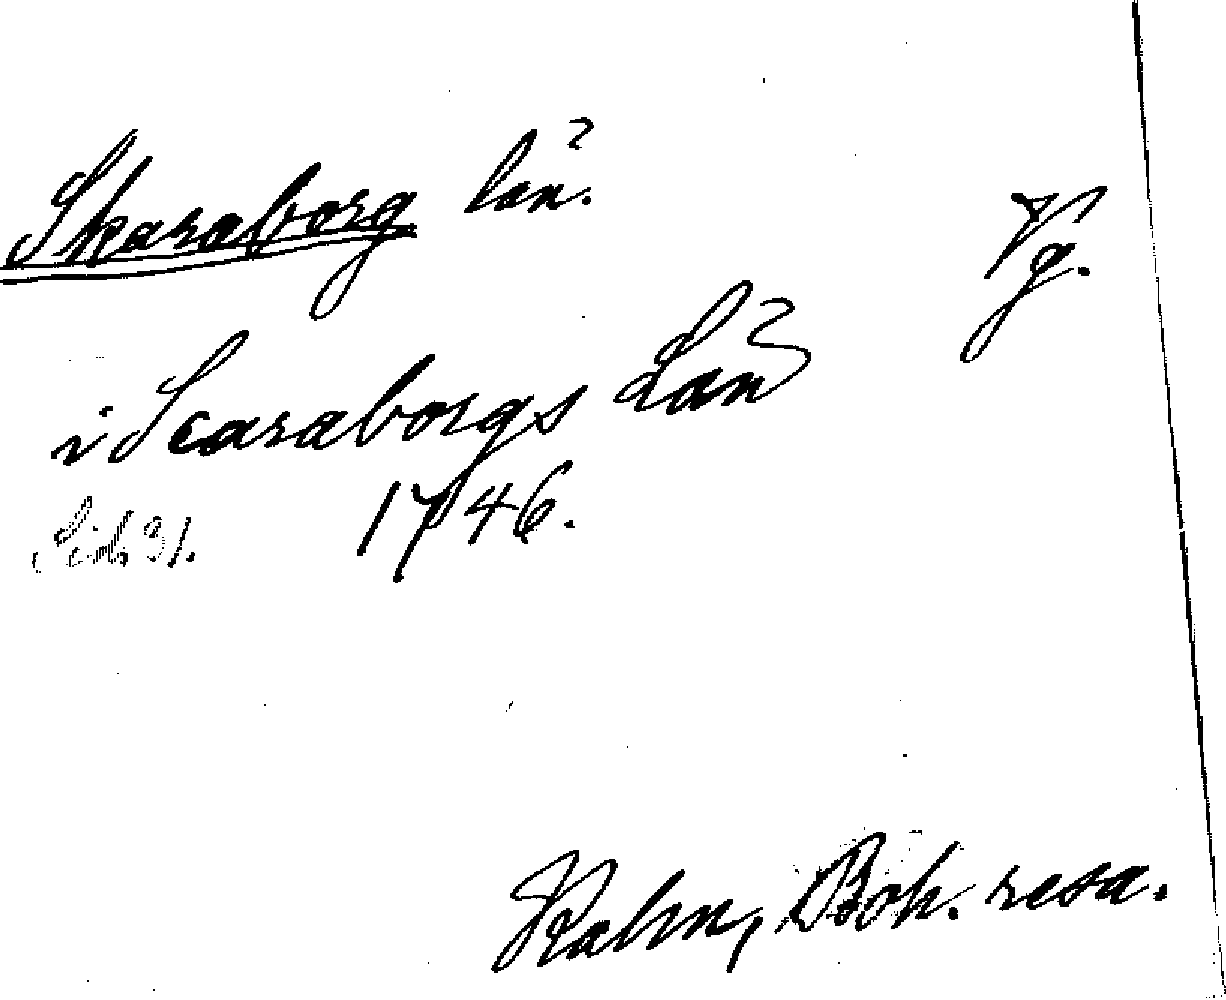 Skaraborg län.
Vg.
i Scaraborgs Län
1746.
Kalm, Boh. resa.